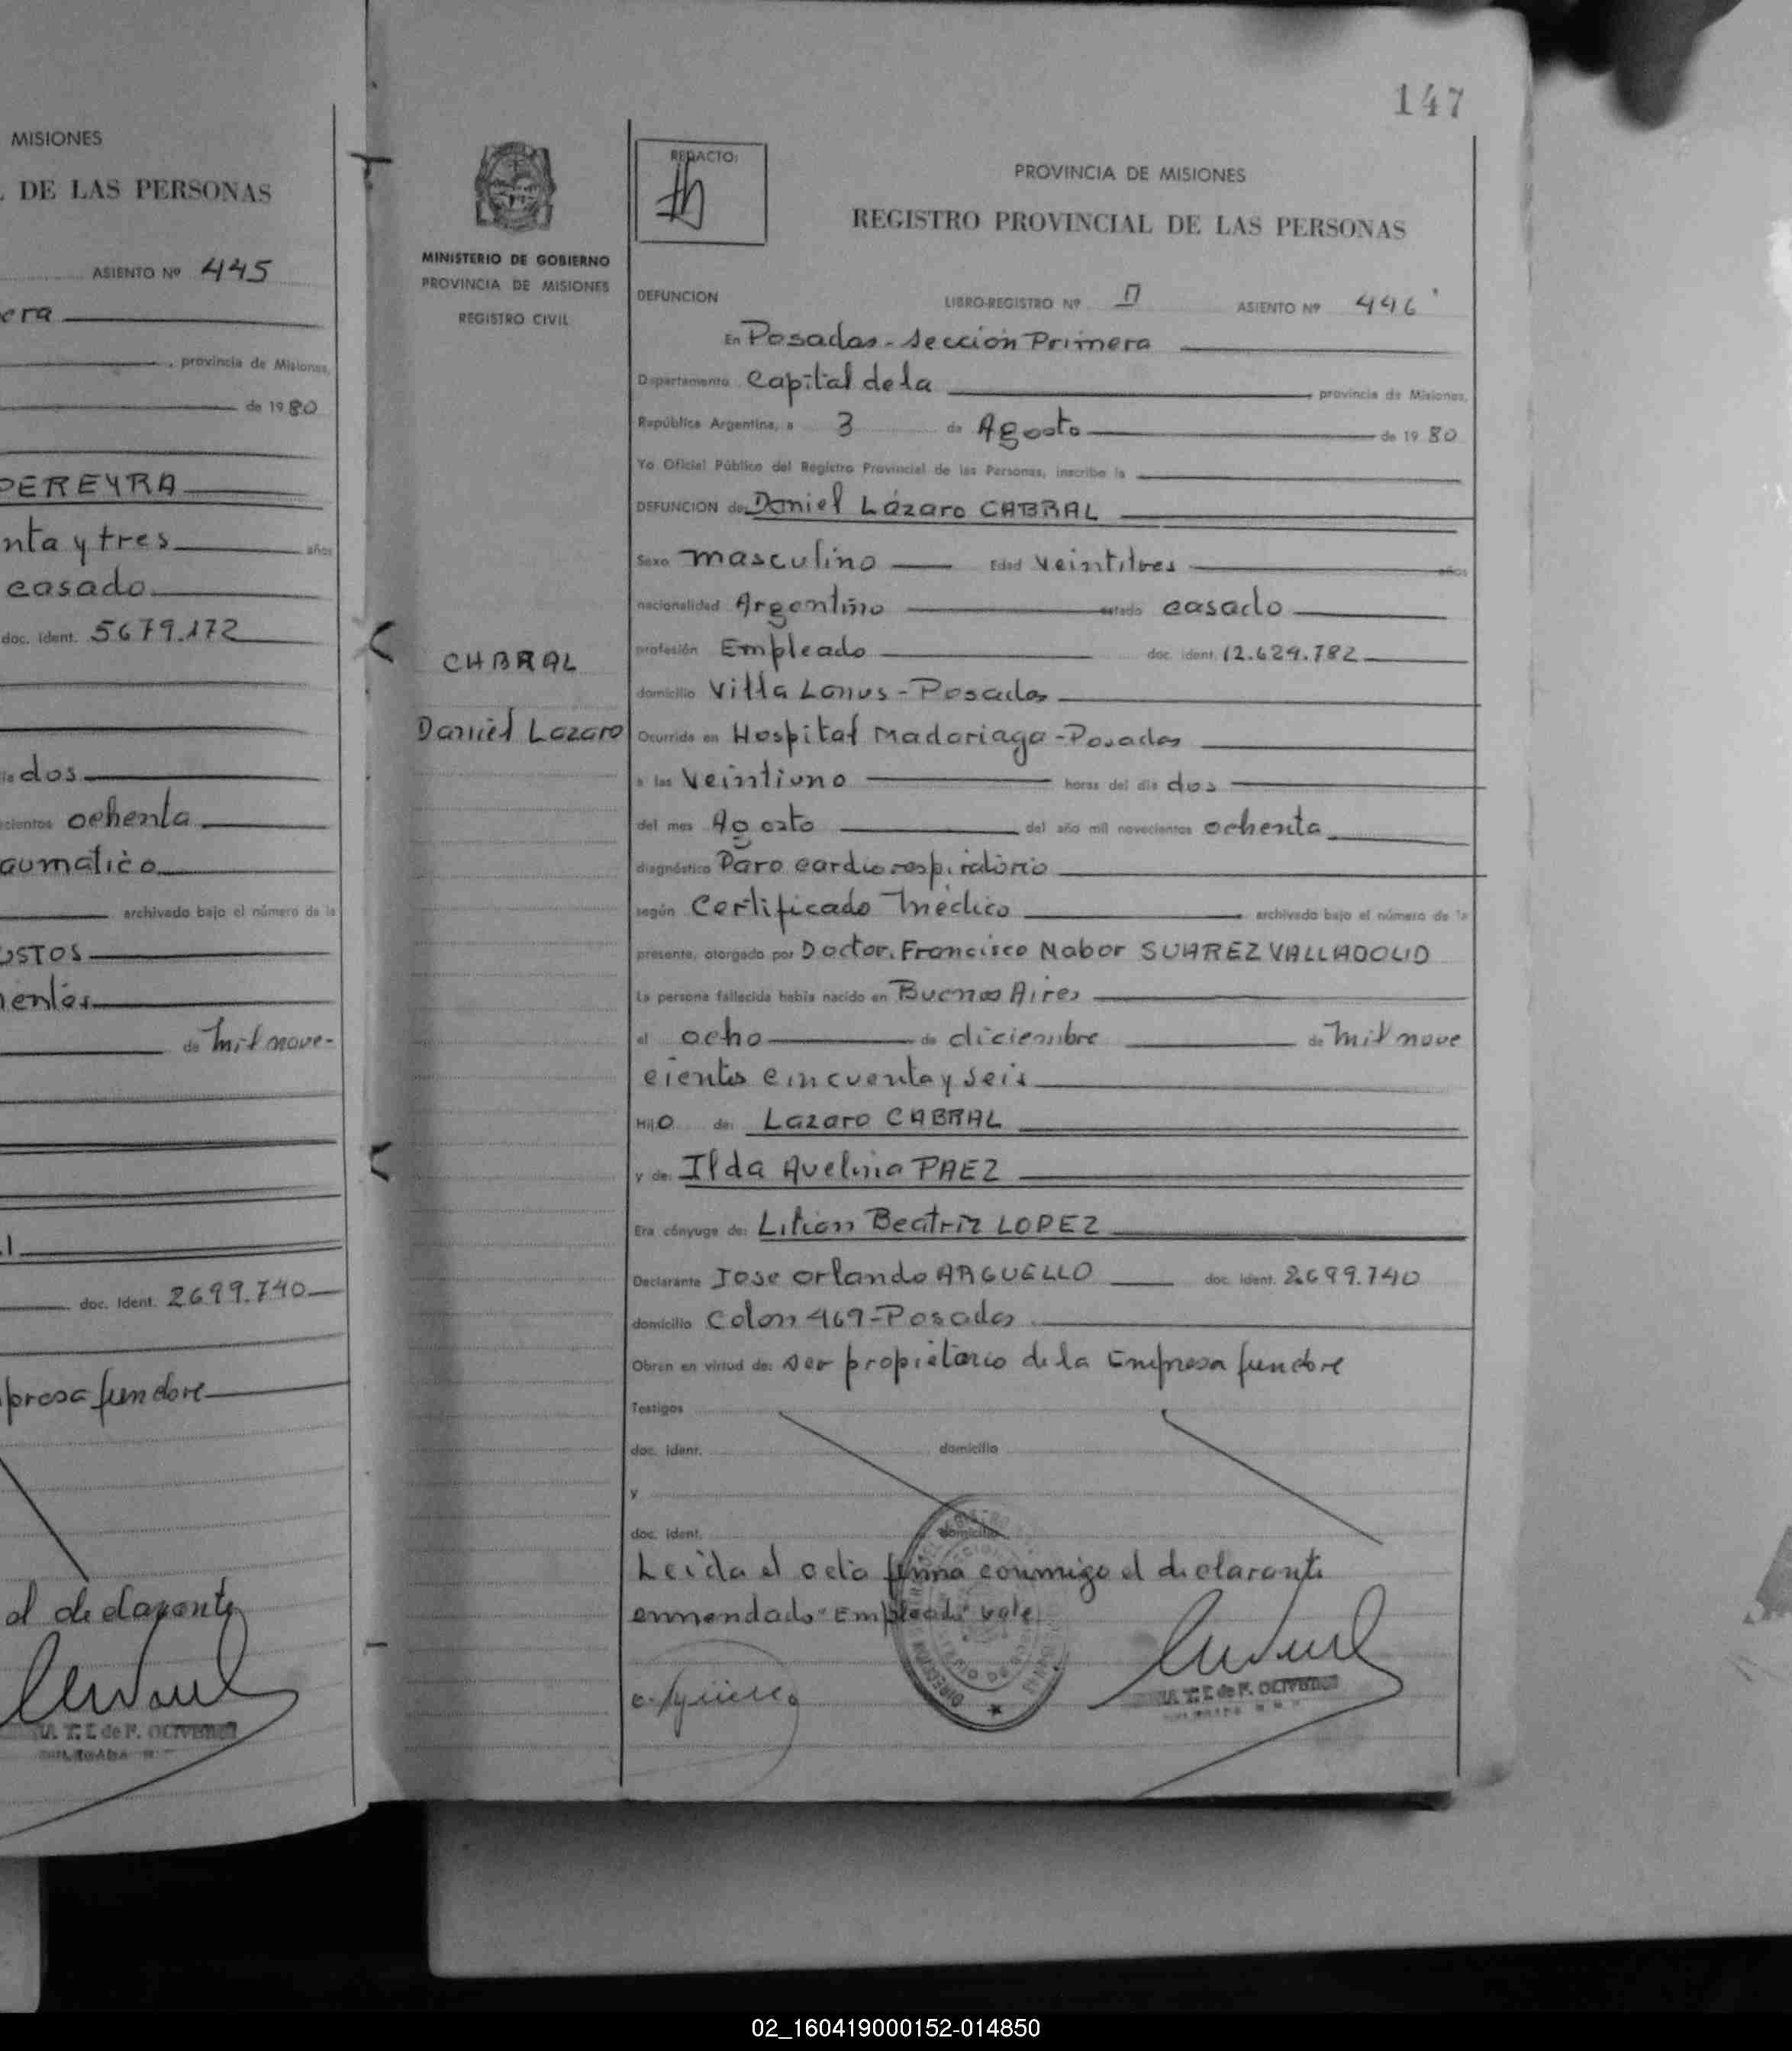 MISIONES
DE LAS PERSONAS
ASIENTO Nº 445
era
, provincia de Misiones,
de 1980
PEREYRA
nta y tres años
casado
doc. ident. 5679.172
dos
ochenta
aumatico
archivado bajo el número de la
USTOS
ientos
de mil nove-
doc. ident. 2699.740
presa funebre
el declarante
147
MINISTERIO DE GOBIERNO
PROVINCIA DE MISIONES
REGISTRO CIVIL
CABRAL
Daniel Lazaro
REDACTO:
PROVINCIA DE MISIONES
REGISTRO PROVINCIAL DE LAS PERSONAS
DEFUNCION LIBRO-REGISTRO Nº ASIENTO Nº 446
En Posadas - sección Primera
Departamento Capital de la provincia de Misiones,
República Argentina, a 3 de Agosto de 1980
Yo Oficial Público del Registro Provincial de las Personas, inscribo la
DEFUNCION de: Daniel Lázaro CABRAL
Sexo masculino Edad veintitres años
nacionalidad Argentino estado casado
profesión Empleado doc. ident. 12.629.782
domicilio Villa Lanus - Posadas
Ocurrida en Hospital Madariaga - Posadas
a las veintiuno horas del día dos
del mes Agosto del año mil novecientos ochenta
diagnóstico Paro cardiorespiratorio
según Certificado Médico archivado bajo el número de la
presente, otorgado por Doctor. Francisco Nabor SUAREZ VALLADOLID
La persona fallecida había nacido en Buenos Aires
el ocho de diciembre de mil nove
cientos cincuenta y seis
Hijo de: Lazaro CABRAL
y de: Ilda Avelina PAEZ
Era cónyuge de: Lilian Beatriz LOPEZ
Declarante Jose Orlando ARGUELLO doc. ident. 2.699.740
domicilio Colon 469 - Posadas
Obran en virtud de: ser propietario de la Empresa funebre
Testigos
doc. ident. domicilio
y
doc. ident. domicilio
Leida el acta firma conmigo el declarante
enmendado "Empleado" vale
02_160419000152-014850